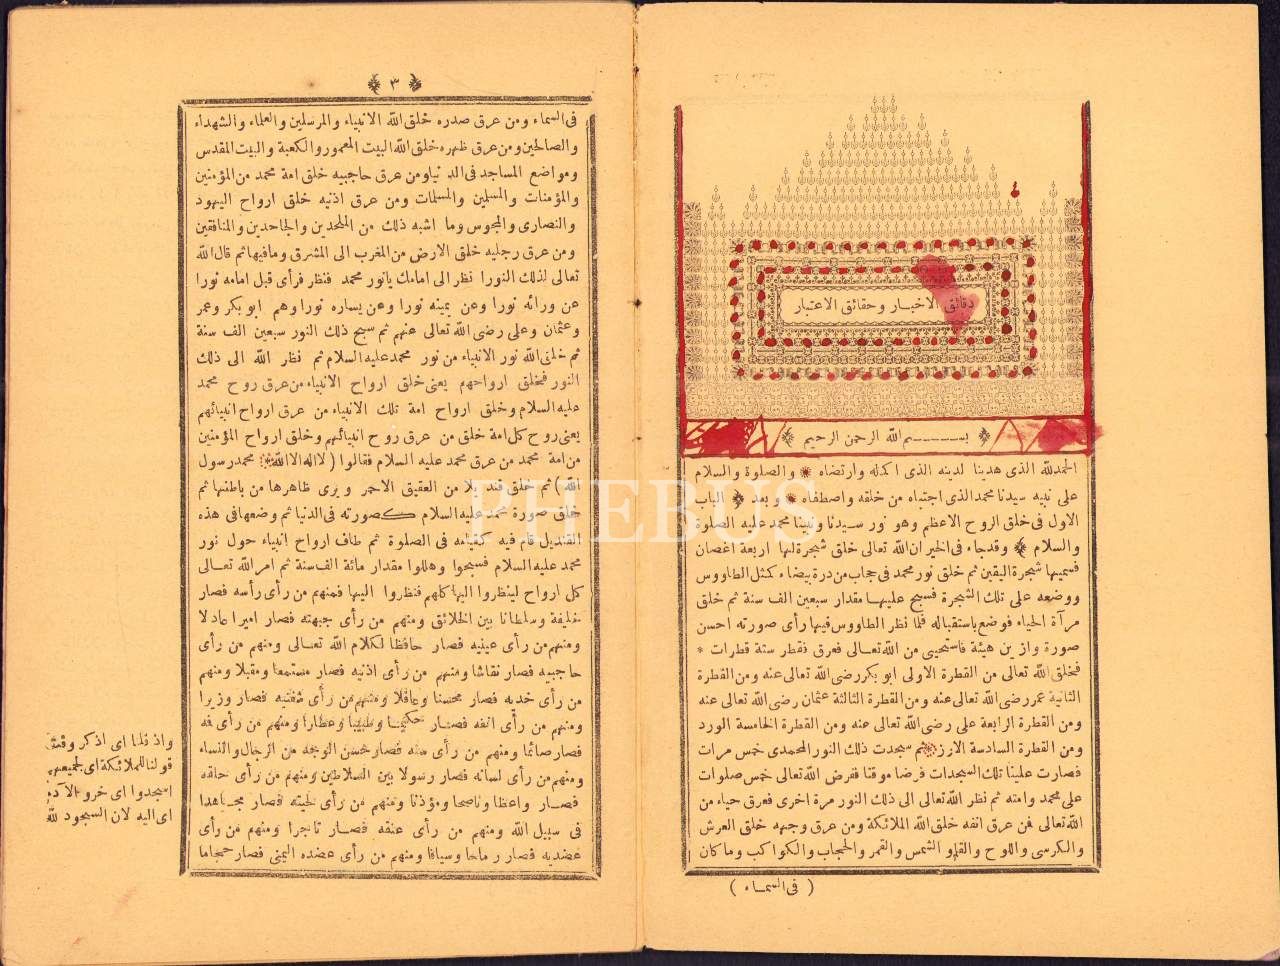 دقائق الاخبار وحقائق الاعتبار
بسم الله الرحمن الرحيم
الحمدلله الذى هدينا لدينه الذى اكمله وارتضاه * والصلوة والسلام
على نبيه سيدنا محمد الذى اجتباه من خلقه واصطفاه * وبعد * الباب
الاول فى خلق الروح الاعظم وهو نور سيدنا ونبينا محمد عليه الصلوة
والسلام * وقدجاء فى الخبر ان الله تعالى خلق شجرة لها اربعة اغصان
فسميها شجرة اليقين ثم خلق نور محمد فى حجاب من درة بيضاء كمثل الطاووس
ووضعه على تلك الشجرة فسبح عليها مقدار سبعين الف سنة ثم خلق
مرآة الحياء فوضع باستقباله فلما نظر الطاووس فيها رأى صورته احسن
صورة واز ين هيئة فاستحيى من الله تعالى فعرق نقطر ستة قطرات *
فخلق الله تعالى من القطرة الاولى ابو بكر رضى الله تعالى عنه ومن القطرة
الثانية عمر رضى الله تعالى عنه ومن القطرة الثالثة عثمان رضى الله تعالى عنه
ومن القطرة الرابعة على رضى الله تعالى عنه ومن القطرة الخامسة الورد
ومن القطرة السادسة الارز * ثم سجدت ذلك النور المحمدى خمس مرات
فصارت علينا تلك السجدات فرضا موقتا ففرض الله تعالى خمس صلوات
على محمد وامته ثم نظر الله تعالى الى ذلك النور مرة اخرى فعرق حياء من
الله تعالى فمن عرق انفه خلق الله الملائكة ومن عرق وجهه خلق العرش
والكرسى واللوح والقلم والشمس والقمر والحجاب والكواكب وماكان
( فى السماء )
٣
فى السماء ومن عرق صدره خلق الله الانبياء والمرسلين والعلماء والشهداء
والصالحين ومن عرق ظهره خلق الله البيت المعمور والكعبة والبيت المقدس
ومواضع المساجد فى الدنيا ومن عرق حاجبيه خلق امة محمد من المؤمنين
والمؤمنات والمسلمين والمسلمات ومن عرق اذنيه خلق ارواح اليهود
والنصارى والمجوس وما اشبه ذلك من الملحدين والجاحدين والمنافقين
ومن عرق رجليه خلق الارض من المغرب الى المشرق ومافيها ثم قال الله
تعالى لذلك النور انظر الى امامك يانور محمد فنظر فرأى قبل امامه نورا
عن ورائه نورا وعن يمينه نورا وعن يساره نورا وهم ابو بكر وعمر
وعثمان وعلى رضى الله تعالى عنهم ثم سبح ذلك النور سبعين الف سنة
ثم خلق الله نور الانبياء من نور محمد عليه السلام ثم نظر الله الى ذلك
النور فخلق ارواحهم يعنى خلق ارواح الانبياء من عرق روح محمد
عليه السلام وخلق ارواح امة تلك الانبياء من عرق ارواح انبيائهم
يعنى روح كل امة خلق من عرق روح انبيائهم وخلق ارواح المؤمنين
من امة محمد من عرق محمد عليه السلام فقالوا ( لااله الاالله * محمد رسول
الله ) ثم خلق قنديلا من العقيق الاحمر ويرى ظاهرها من باطنها ثم
خلق صورة محمد عليه السلام كصورته فى الدنيا ثم وضعها فى هذه
القنديل قام فيه كقيامه فى الصلوة ثم طاف ارواح انبياء حول نور
محمد عليه السلام فسبحوا وهللوا مقدار مائة الف سنة ثم امر الله تعالى
كل ارواح لينظروا اليها كلهم فنظروا اليها فمنهم من رأى رأسه فصار
خليفة وسلطانا بين الخلائق ومنهم من رأى جبهته فصار اميرا عادلا
ومنهم من رأى عينيه فصار حافظا لكلام الله تعالى ومنهم من رأى
حاجبيه فصار نقاشا ومنهم من رأى اذنيه فصار مستمعا ومقبلا ومنهم
من رأى خديه فصار محسنا وعاقلا ومنهم من رأى شفتيه فصار وزيرا
ومنهم من رأى انفه فصار حكيما وطبيبا وعطارا ومنهم من رأى فه
فصار صائما ومنهم من رأى سنه فصار حسن الوجه من الرجال والنساء
ومنهم من رأى لسانه فصار رسولا بين السلاطين ومنهم من رأى حلقه
فصار واعظا وناصحا ومؤذنا ومنهم من رأى لحيته فصار مجاهدا
فى سبيل الله ومنهم من رأى عنقه فصار تاجرا ومنهم من رأى
عضديه فصار رماحا وسيافا ومنهم من رأى عضده اليمنى فصار حجاما
واذ قلنا اى اذكر وقت
قولنا للملائكة اى لجميعهم
اسجدوا اى خروا لآدم
اى اليه لان السجود لله
PHEBUS